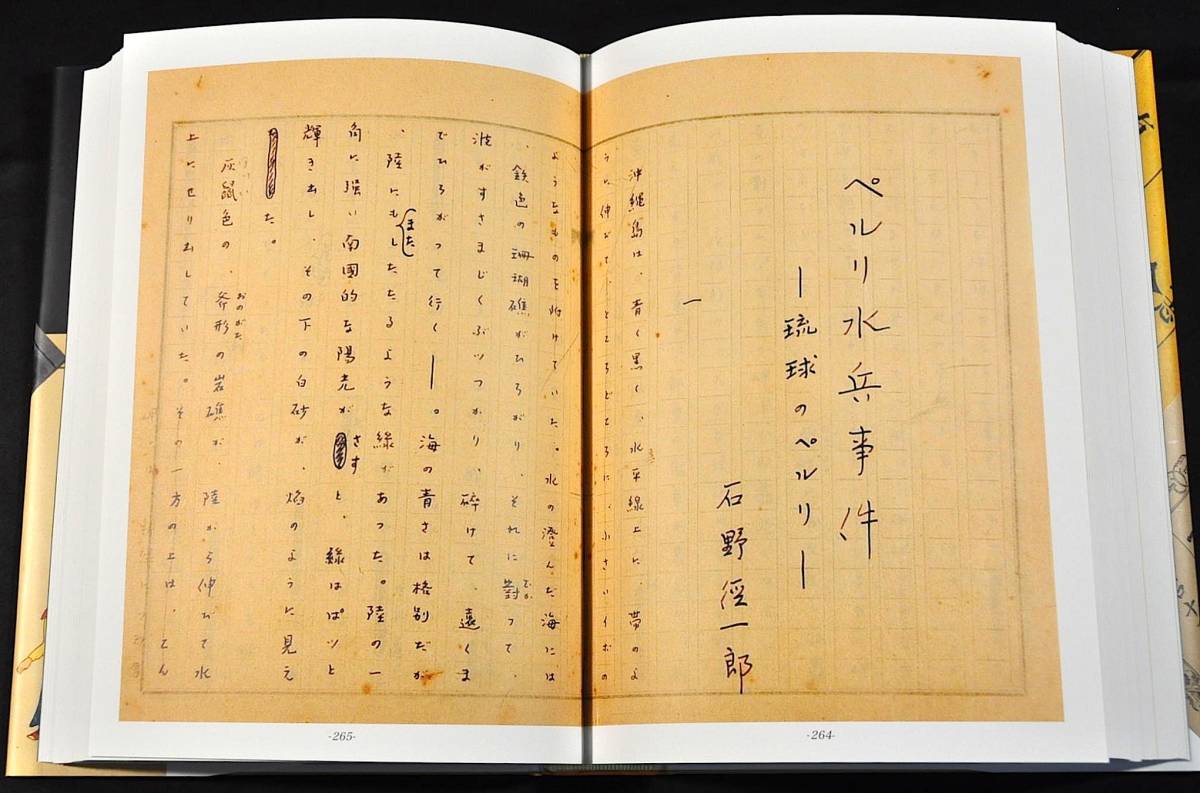 ペルリ水兵事件
―琉球のペルリ―
石野径一郎
一
沖縄島は、青く黒く、水平線上に、帯のよ
うに伸びて、ところどころに、小さいイボの
ようなものを附けていた。水の澄んだ海には
、鉄色の珊瑚礁がひろがり、それに對って、
波がすさまじくぶッつかり、砕けて、遠くま
でひろがって行く―。海の青さは格別だが
、陸にもまたしたたるような緑があった。陸の一
角に強い南國的な陽光がさすと、緑はぱッと
輝き出し、その下の白砂が、焰のように見え
た。
灰鼠色の、斧形の岩礁が、陸から伸びて水
おのがた
上にせり出していた。その一方の上は、てん
-265-
-264-